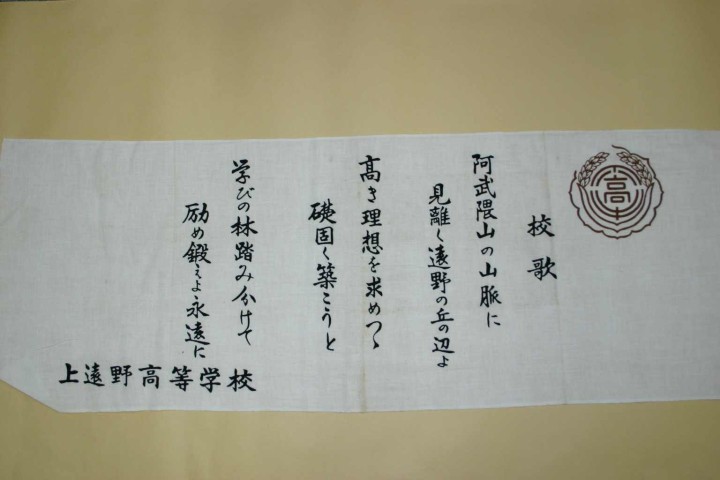 高
校歌
阿武隈山の山脈に
見離く遠野の丘の辺よ
高き理想を求めつゝ
礎固く築こうと
学びの林踏み分けて
励め鍛えよ永遠に
上遠野高等学校